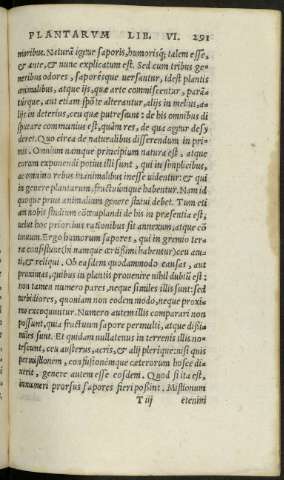 PLANTARVM LIB. VI. 291
mioribus. Naturã igitur saporis, humorisq; talem esse,
& ante, & nunc explicatum est. Sed cum tribus ge-
neribus odores, saporésque uersantur, idest plantis
animalibus, atque ijs, quæ arte commiscentur, parã-
túrque, aut etiam spõte alterantur, alijs in melius, a-
lijs in deterius, ceu quæ putrescunt: de his omnibus di
sputare communius est, quàm res, de qua agitur desy
deret. Quo circa de naturalibus disserendum in pri-
mis. Omnium nanque principium natura est, atque
eorum exponendi potius illi sunt, qui in simplicibus,
ac omnino rebus in animalibus inesse uidentur: & qui
in genere plantarum, fructuúmque habentur. Nam id
quoque prius animalium genere statui debet. Tum eti
am nobis studium cõtemplandi de his in præsentia est,
uelut hoc prioribus rationibus sit annexum, atque cõ
tinuum. Ergo humorum sapores, qui in gremio terræ
consistunt (hi namque artissimi habentur) ceu acu-
ti, & reliqui. Ob easdem quodammodo causas, aut
proximas, quibus in plantis prouenire nihil dubiũ est:
non tamen numero pares, neque similes illis sunt: sed
turbidiores, quoniam non eodem modo, neque proxi-
mo excoquuntur. Numero autem illis comparari non
possunt, quia fructuum sapore permulti, atque dissi-
miles sunt. Et quidam nullatenus in terrenis illis no-
tescunt, ceu austerus, acris, & alij plerique: nisi quis
permistionem, confusionémque cæterorum hosce di-
xerit, genere autem esse eosdem. Quod si ita est,
innumeri prorsus sapores fieri possint. Mistionum
T iij etenim